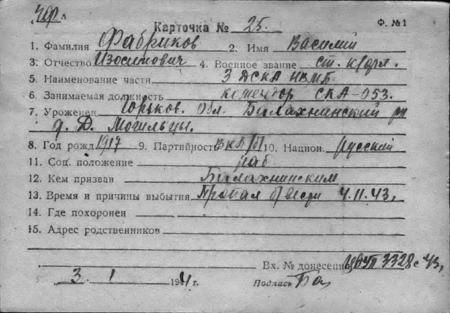 Карточка № 25. Ф. №1
1. Фамилия Фабриков 2. Имя Василий
3. Отчество Изосимович 4. Военное звание ст. кр/фл.
5. Наименование части 3
6. Занимаемая должность СКА-053.
7. Уроженец Горьков. Обл. Балахнинский
д. Д. Могильцы.
8. Год рожд. 1917 9. Партийность ВКП/б/ 10. Национ. русский
11. Соц. положение раб
12. Кем призван Балахнинским
13. Время и причины выбытия Пропал 4.11.43,
14. Где похоронен
15. Адрес родственников
Вх. № донесения 3328с 43,
3 1 194 г. Подпись